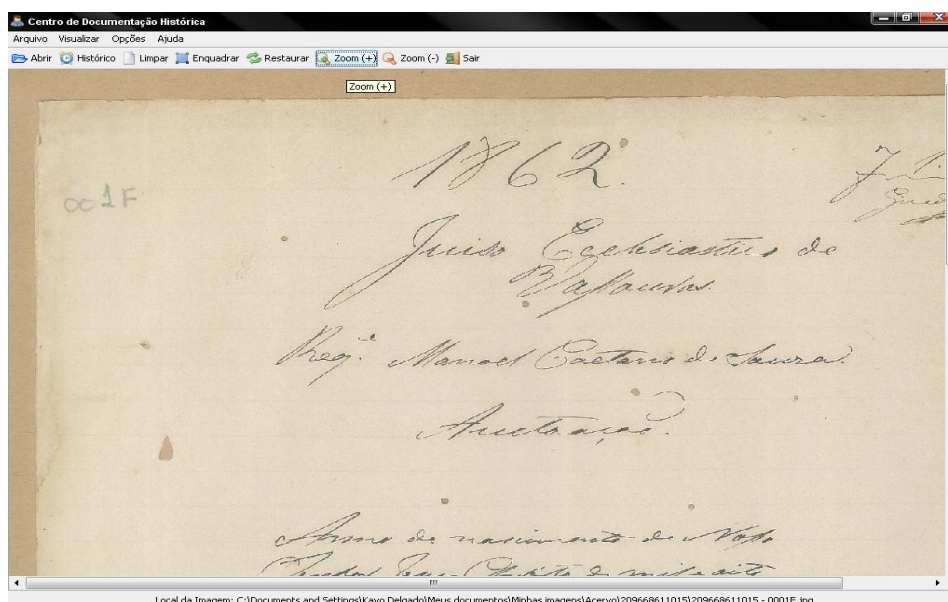 Centro de Documentação Histórica
Arquivo Visualizar Opções Ajuda
Abrir Histórico Limpar Enquadrar Restaurar Zoom (+) Zoom (-) Sair
Zoom (+)
1862.
001F
Juiso Ecclesiastico de
Vassouras.
Reqe. Manoel Caetano de Souza.
Autoação.
Anno do nascimento de Nosso
Senhor Jesus Christo de mil e oito
Local da Imagem: C:\Documents and Settings\Kayo Delgado\Meus documentos\Minhas imagens\Acervo\209668611015\209668611015 - 0001F.jpg